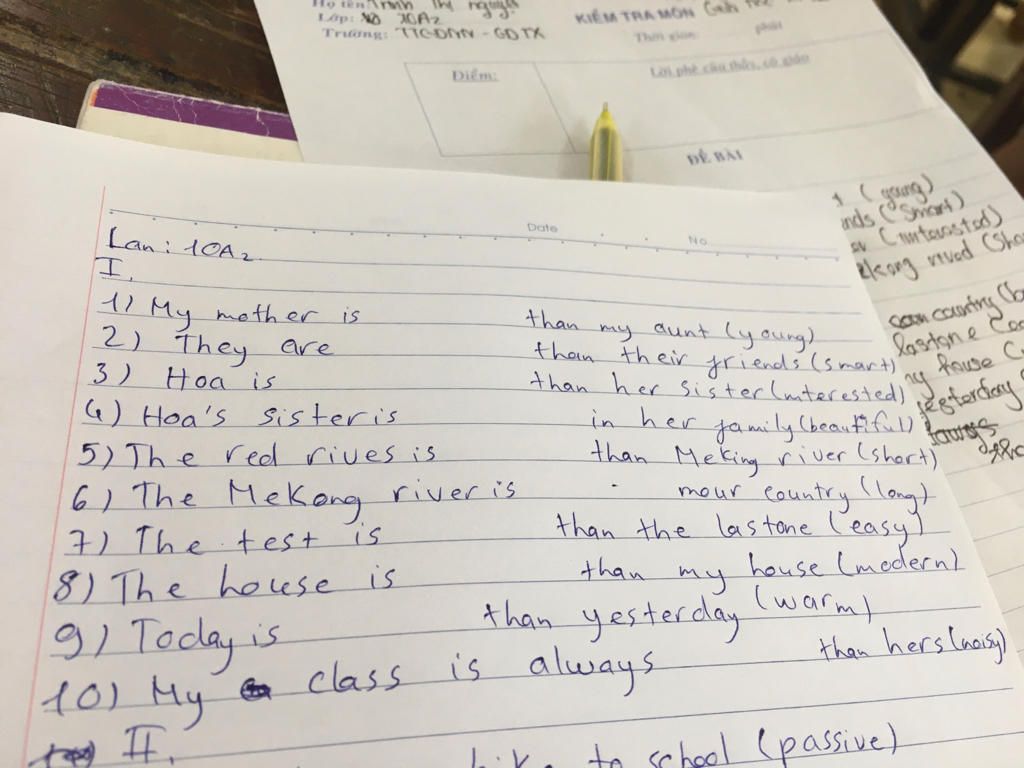 Họ tên: Trinh Thị nguyệt
Lớp: 10A2
Trường: TTGDNN - GDTX
KIỂM TRA MÔN
Thời gian: phút
Điểm:
Lời phê của thầy, cô giáo
ĐỀ BÀI
(young)
(smart)
(interested)
(Sho
country (
lastone (
house (
yesterday
Date No
Lan: 10A2
I.
1) My mother is than my aunt (young)
2) They are than their friends (smart)
3) Hoa is than her sister (interested)
4) Hoa's sister is in her family (beautiful)
5) The red rives is than Meking river (short)
6) The MeKong river is mour country (long)
7) The test is than the lastone (easy)
8) The house is than my house (modern)
9) Today is than yesterday (warm)
10) My class is always than hers (noisy)
II.
to school (passive)